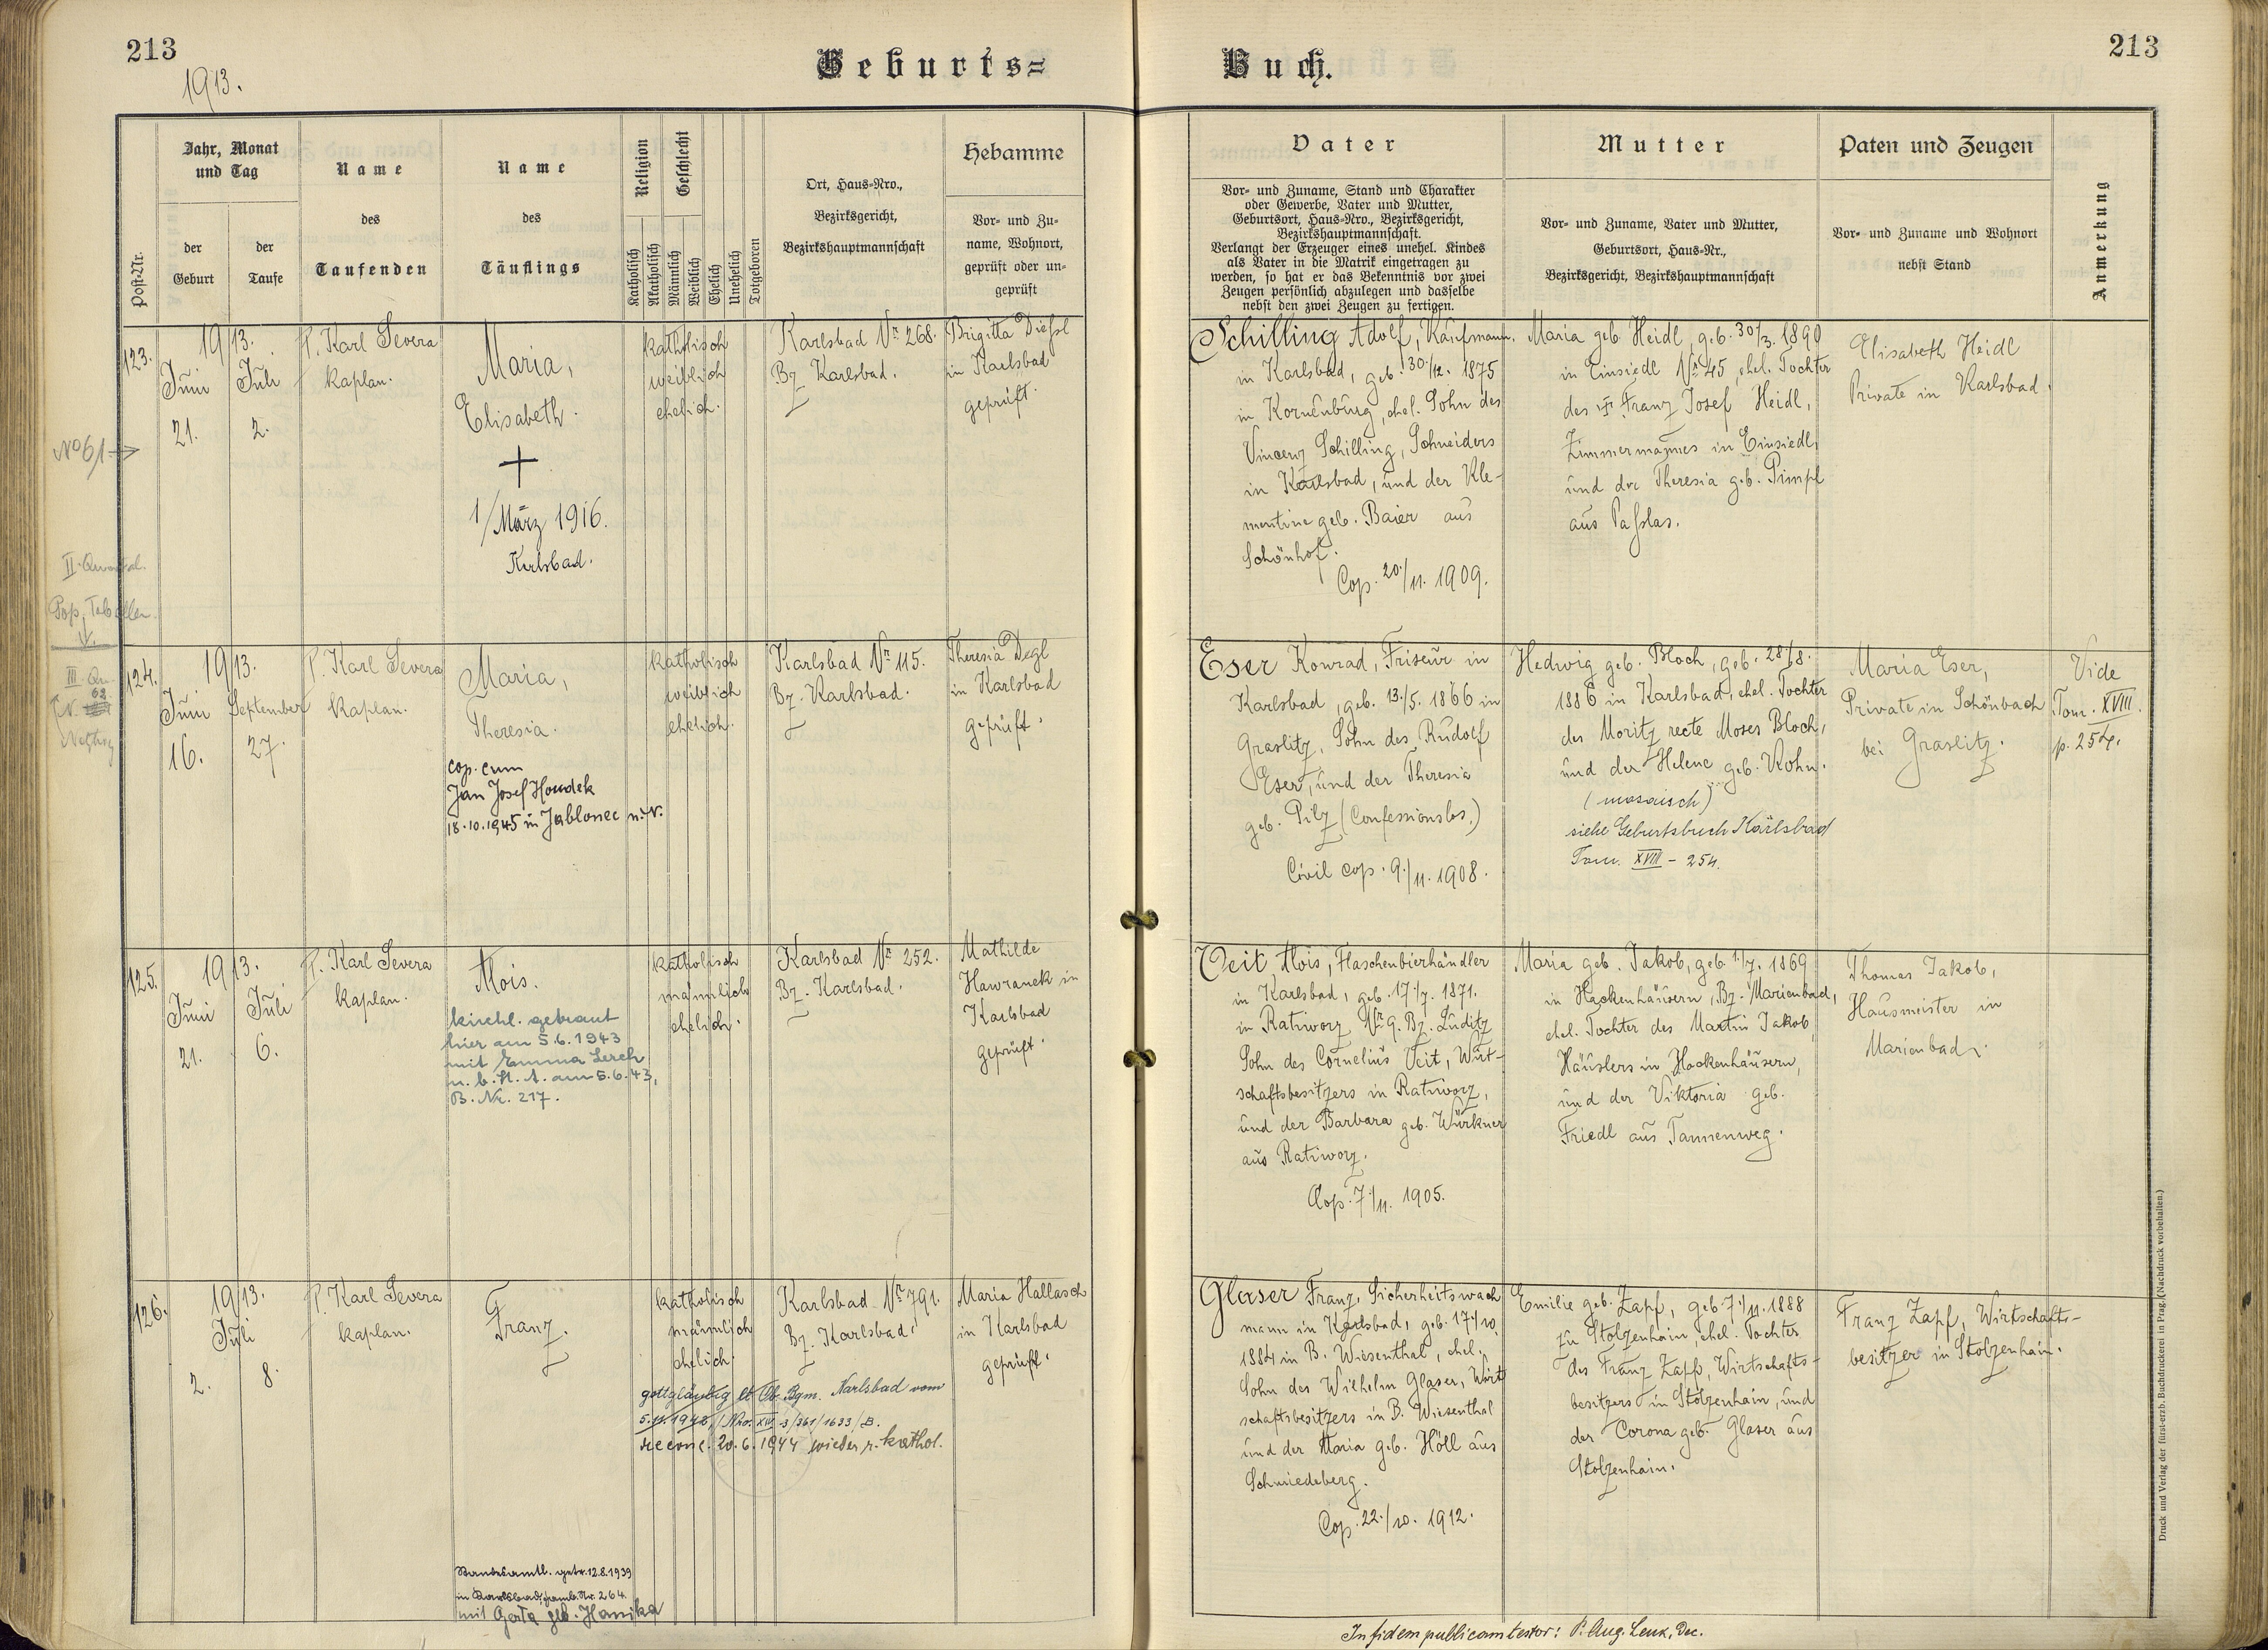 213
1913.
Geburts=
Buch.
213
Post-Nr.
Jahr, Monat
und Tag
der
Geburt
der
Taufe
Name
des
Taufenden
Name
des
Täuflings
Religion
Katholisch
Akatholisch
Geschlecht
Männlich
Weiblich
Ehelich
Unehelich
Totgeboren
Ort, Haus-Nro.,
Bezirksgericht,
Bezirkshauptmannschaft
Hebamme
Vor- und Zu-
name, Wohnort,
geprüft oder un-
geprüft
Vater
Vor- und Zuname, Stand und Charakter
oder Gewerbe, Vater und Mutter,
Geburtsort, Haus-Nro., Bezirksgericht,
Bezirkshauptmannschaft.
Verlangt der Erzeuger eines unehel. Kindes
als Vater in die Matrik eingetragen zu
werden, so hat er das Bekenntnis vor zwei
Zeugen persönlich abzulegen und dasselbe
nebst den zwei Zeugen zu fertigen.
Mutter
Vor- und Zuname, Vater und Mutter,
Geburtsort, Haus-Nr.,
Bezirksgericht, Bezirkshauptmannschaft
Paten und Zeugen
Vor- und Zuname und Wohnort
nebst Stand
Anmerkung
No 61 →
123.
1913.
Juni
21.
Juli
2.
P. Karl Severa
Kaplan.
Maria,
Elisabeth.
+
1/März 1916.
Karlsbad.
katholisch
weiblich
ehelich.
Karlsbad Nr 268.
Bz Karlsbad.
Brigitta Dießl
in Karlsbad
geprüft.
Schilling Adolf, Kaufmann,
in Karlsbad, geb. 30./12. 1875
in Korneuburg, ehel. Sohn des
Vincenz Schilling, Schneiders
in Karlsbad, und der Kle-
mentine geb. Baier aus
Schönhof.
Cop. 20./11. 1909.
Maria geb. Heidl, geb. 30/3. 1890
in Einsiedl Nr 45, ehel. Tochter
des Franz Josef Heidl,
Zimmermannes in Einsiedl,
und der Theresia geb. Pimpl
aus Paßlas.
Elisabeth Heidl
Private in Karlsbad.
II. Quartal.
Pop. Tabellen
III. Qu.
62
124.
1913.
Juni
16.
September
27.
P. Karl Severa
Kaplan.
Maria,
Theresia.
cop. cum
Jan Josef Houdek
18.10.1945 in Jablonec n.N.
katholisch
weiblich
ehelich.
Karlsbad Nr 115.
Bz. Karlsbad.
Theresia Degl
in Karlsbad
geprüft.
Eser Konrad, Friseur in
Karlsbad, geb. 13./5. 1866 in
Graslitz, Sohn des Rudolf
Eser, und der Theresia
geb. Pilz (Confessionslos.)
Civil cop. 9./11. 1908.
Hedwig geb. Bloch, geb. 28/8.
1886 in Karlsbad, ehel. Tochter
des Moritz recte Moses Bloch,
und der Helene geb. Kohn.
(mosaisch)
siehe Geburtsbuch Karlsbad
Tom. XVIII - 254.
Maria Eser,
Private in Schönbach
bei Graslitz.
Vide
Tom. XVIII.
p. 254.
125.
1913.
Juni
21.
Juli
6.
P. Karl Severa
Kaplan.
Alois.
kirchl. getraut
hier am 5.6.1943
mit Emma Lerch
n. b. St. A. am 5.6.43,
B. Nr. 217.
katholisch
männlich
ehelich.
Karlsbad Nr 252.
Bz. Karlsbad.
Mathilde
Hawranek in
Karlsbad
geprüft.
Veit Alois, Flaschenbierhändler
in Karlsbad, geb. 17./7. 1871.
in Ratiworz Nr 9. Bz. Luditz
Sohn des Cornelius Veit, Wirt-
schaftsbesitzers in Ratiworz,
und der Barbara geb. Würkner
aus Ratiworz.
Cop. 7./11. 1905.
Maria geb. Jakob, geb. 1./7. 1869
in Hackenhäusern, Bz. Marienbad,
ehel. Tochter des Martin Jakob,
Häuslers in Hackenhäusern,
und der Viktoria geb.
Friedl aus Tannenweg.
Thomas Jakob,
Hausmeister in
Marienbad.
126.
1913.
Juli
2.
8.
P. Karl Severa
Kaplan.
Franz.
katholisch
männlich
ehelich.
gottgläubig lt Ob. Bgm. Karlsbad vom
5.11.1942, / Nro. XIV-3/361/1633/B.
reconc. 20.6.1944 wieder r. kathol.
Standesamtl. getr. 12.8.1939
in Karlsbad, Famb. Nr. 264
mit Gerta geb. Hanika
Karlsbad Nr 791.
Bz. Karlsbad.
Maria Hallasch
in Karlsbad
geprüft.
Glaser Franz, Sicherheitswach
mann in Karlsbad, geb. 17./10.
1884 in B. Wiesenthal, ehel.
Sohn des Wilhelm Glaser, Wirt
schaftsbesitzers in B. Wiesenthal
und der Maria geb. Höll aus
Schmiedeberg.
Cop. 22./10. 1912.
Emilie geb. Zapf, geb. 7./11. 1888
zu Stolzenhain, ehel. Tochter
des Franz Zapf, Wirtschafts-
besitzers in Stolzenhain, und
der Corona geb. Glaser aus
Stolzenhain.
Franz Zapf, Wirtschafts-
besitzer in Stolzenhain.
In fidem publicam testor: P. Aug. Lenk, Dec.
Druck und Verlag der fürst-erzb. Buchdruckerei in Prag. (Nachdruck vorbehalten.)